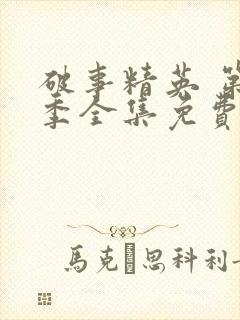 破事精英 第
季全集免費
馬克·思科利